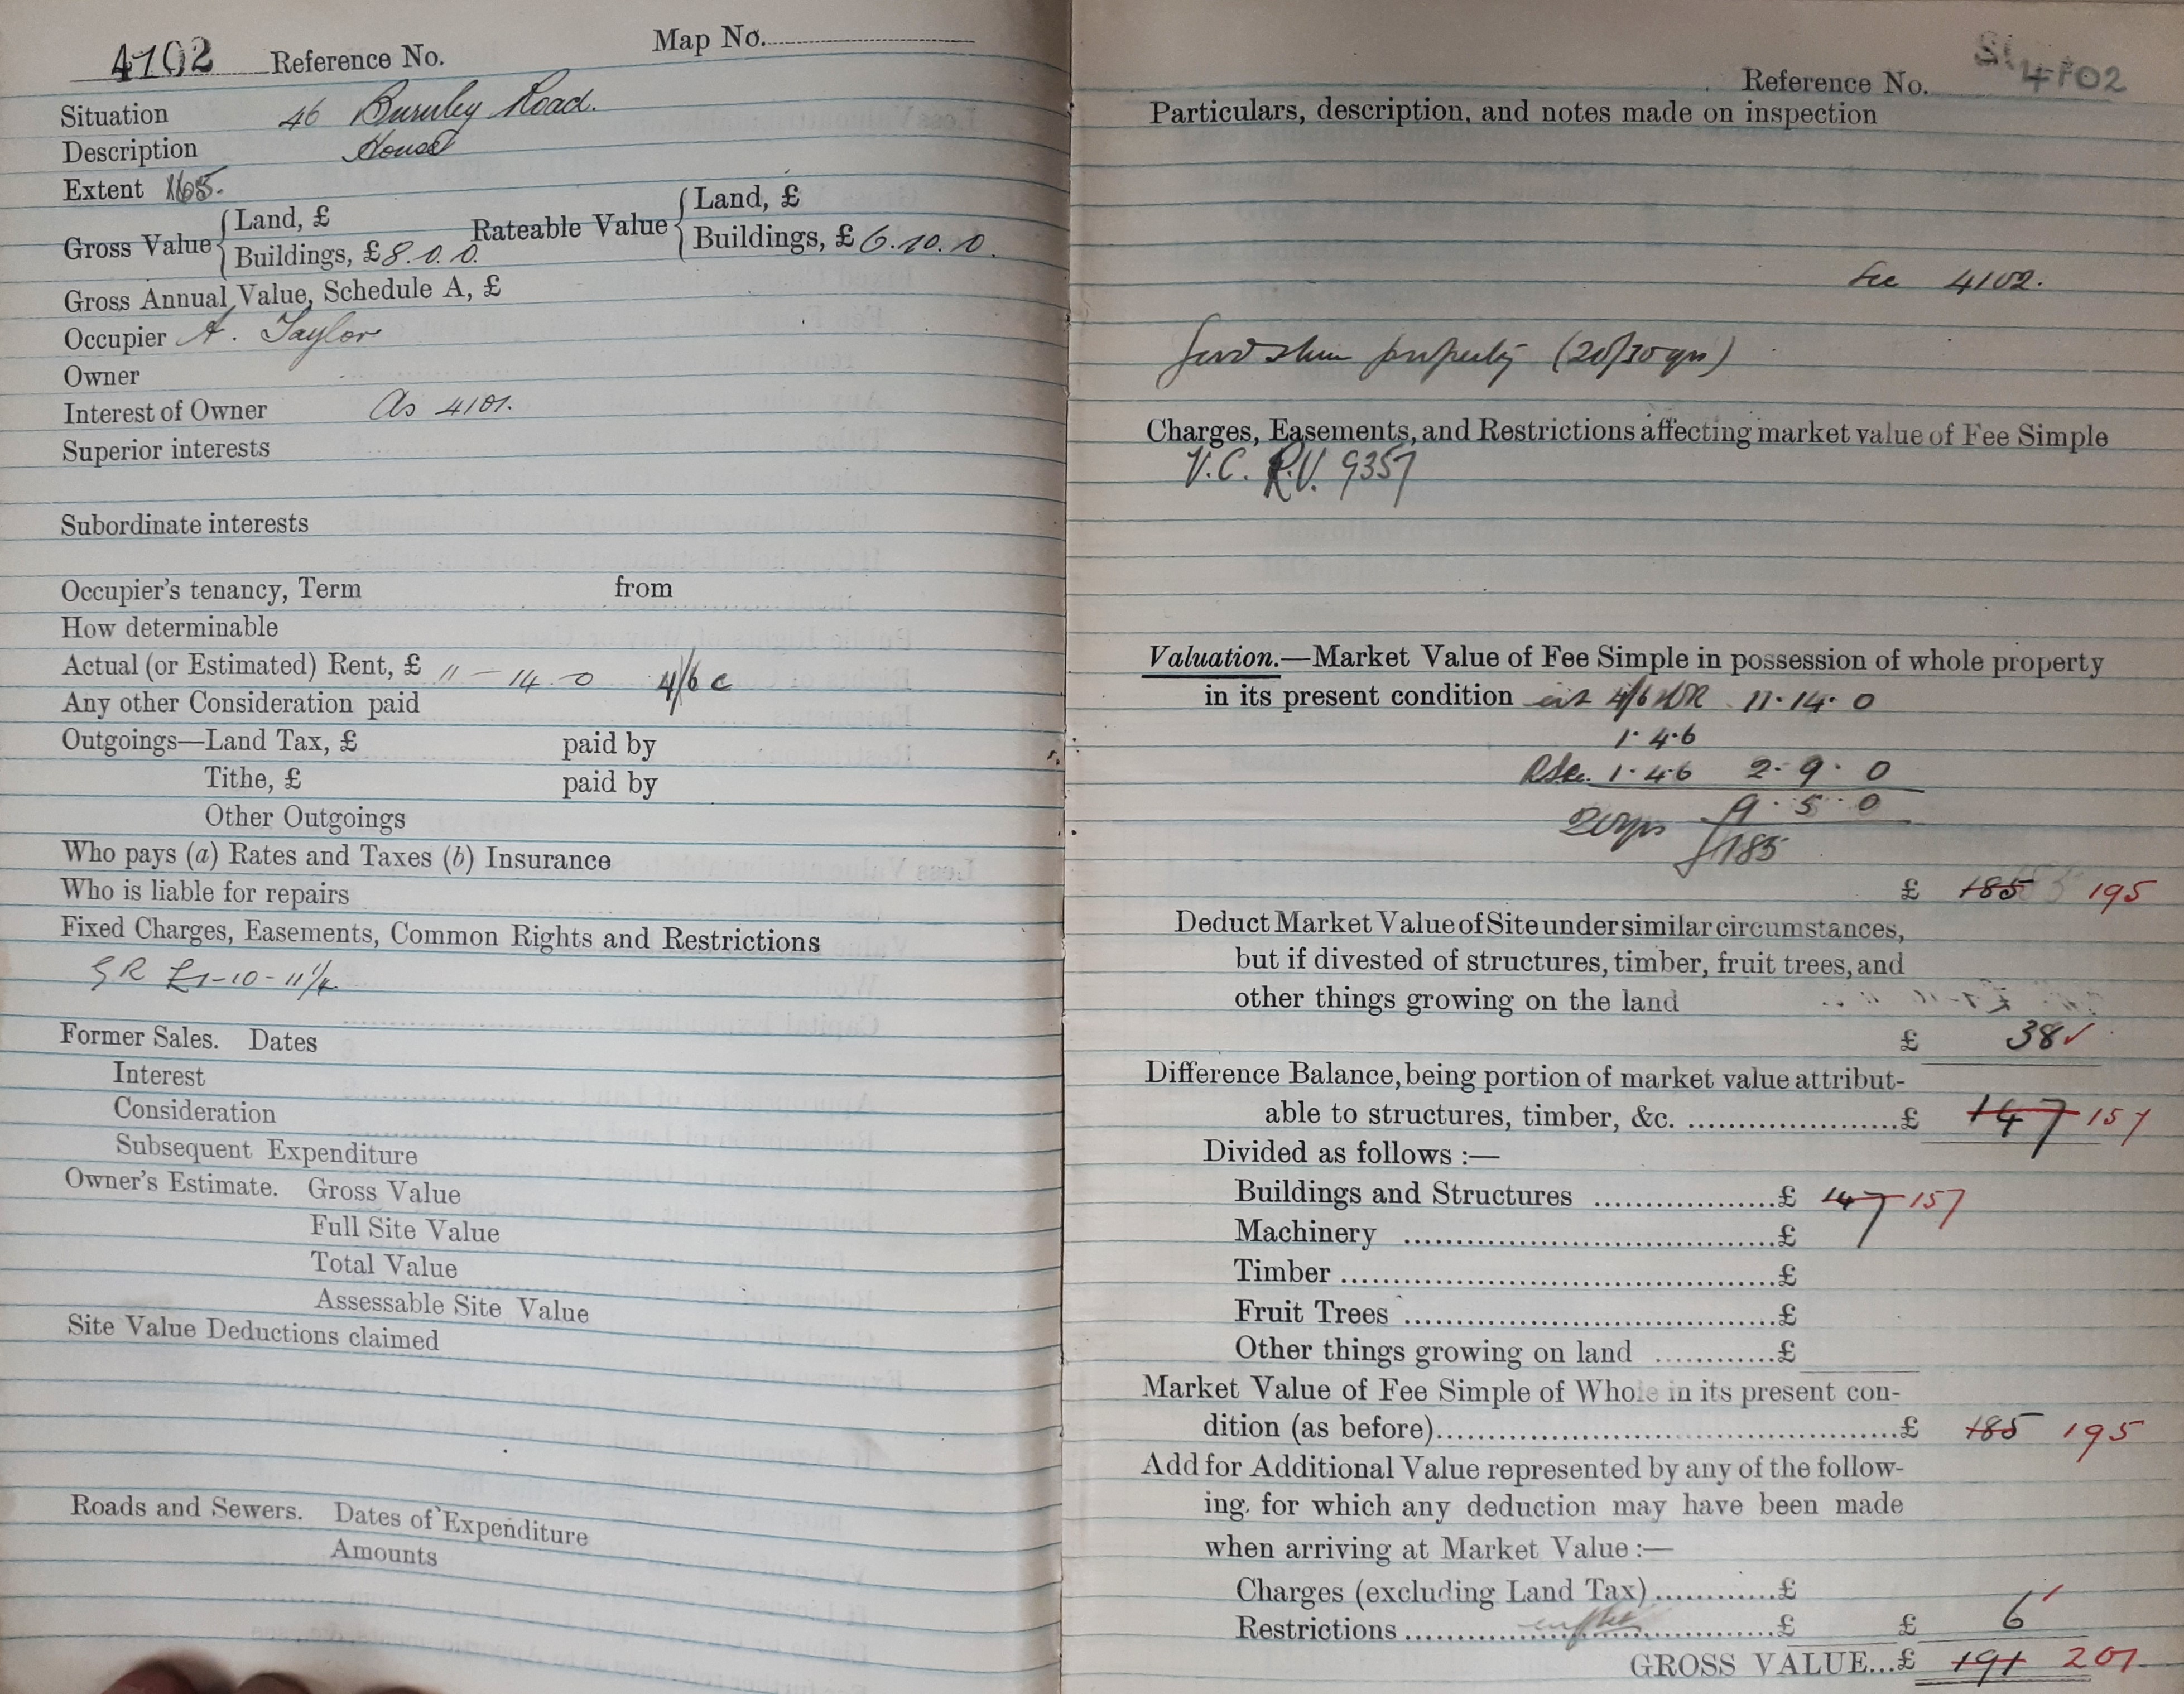 4102 Reference No. Map No.
Situation 46 Burnley Road.
Description House
Extent 165.
Gross Value { Land, £
Buildings, £ 8.0.0.
Rateable Value { Land, £
Buildings, £ 6.10.0.
Gross Annual Value, Schedule A, £
Occupier A. Taylor
Owner
Interest of Owner As 4101.
Superior interests
Subordinate interests
Occupier's tenancy, Term from
How determinable
Actual (or Estimated) Rent, £ 11 - 14. 0 4/6 c
Any other Consideration paid
Outgoings—Land Tax, £ paid by
Tithe, £ paid by
Other Outgoings
Who pays (a) Rates and Taxes (b) Insurance
Who is liable for repairs
Fixed Charges, Easements, Common Rights and Restrictions
GR £1-10-11 1/4
Former Sales. Dates
Interest
Consideration
Subsequent Expenditure
Owner's Estimate. Gross Value
Full Site Value
Total Value
Assessable Site Value
Site Value Deductions claimed
Roads and Sewers. Dates of Expenditure
Amounts
Reference No. 4102
Particulars, description, and notes made on inspection
See 4102.
property (20/30 yrs)
Charges, Easements, and Restrictions affecting market value of Fee Simple
V.C. R.V. 9357
Valuation.—Market Value of Fee Simple in possession of whole property
in its present condition 4/6 11.14.0
1.4.6
1.4.6 2.9.0
9.5.0
20 yrs £185
£ 185 195
Deduct Market Value of Site under similar circumstances,
but if divested of structures, timber, fruit trees, and
other things growing on the land
£ 38
Difference Balance, being portion of market value attribut-
able to structures, timber, &c. ....................£ 147 157
Divided as follows :—
Buildings and Structures ..................£ 147 157
Machinery ....................................£
Timber ..........................................£
Fruit Trees ....................................£
Other things growing on land ............£
Market Value of Fee Simple of Whole in its present con-
dition (as before)..............................................£ 185 195
Add for Additional Value represented by any of the follow-
ing, for which any deduction may have been made
when arriving at Market Value :—
Charges (excluding Land Tax)............£
Restrictions ....................................£ £ 6
GROSS VALUE...£ 191 201